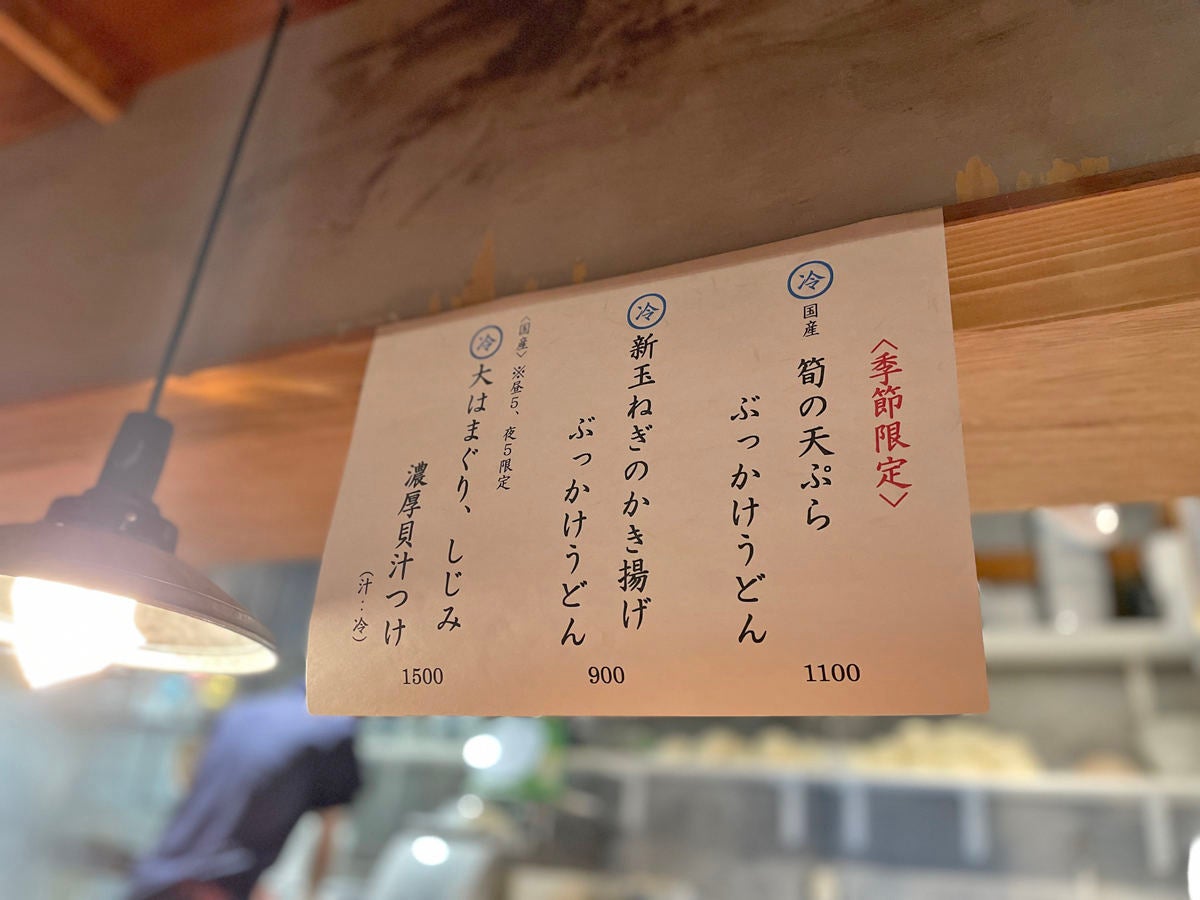 〈季節限定〉
冷 国産 筍の天ぷら
ぶっかけうどん
1100
冷 新玉ねぎのかき揚げ
ぶっかけうどん
900
〈国産〉※昼5、夜5限定
冷 大はまぐり、しじみ
濃厚貝汁つけ
(汁:冷)
1500